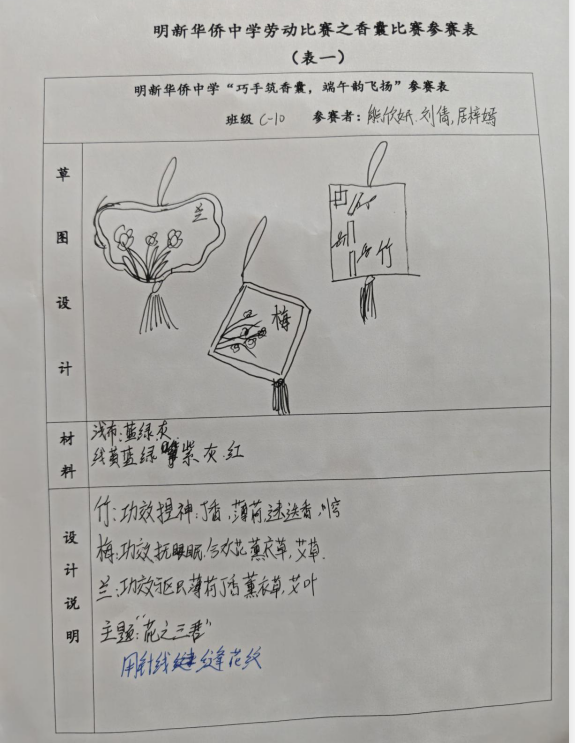 明新华侨中学劳动比赛之香囊比赛参赛表
（表一）
明新华侨中学“巧手筑香囊，端午韵飞扬”参赛表
班级 C-10 参赛者：熊欣妍.刘倩,居梓嫣
草图设计
兰
梅
竹
材料
浅布:蓝绿灰
线黄蓝绿 紫 灰.红
设计说明
竹:功效提神:丁香,薄荷,迷迭香,
梅:功效抚眼眠,合欢花薰衣草,艾草.
兰:功效驱只薄荷丁香薰衣草,艾叶
主题:“花之三君”
用针线 缝花纹